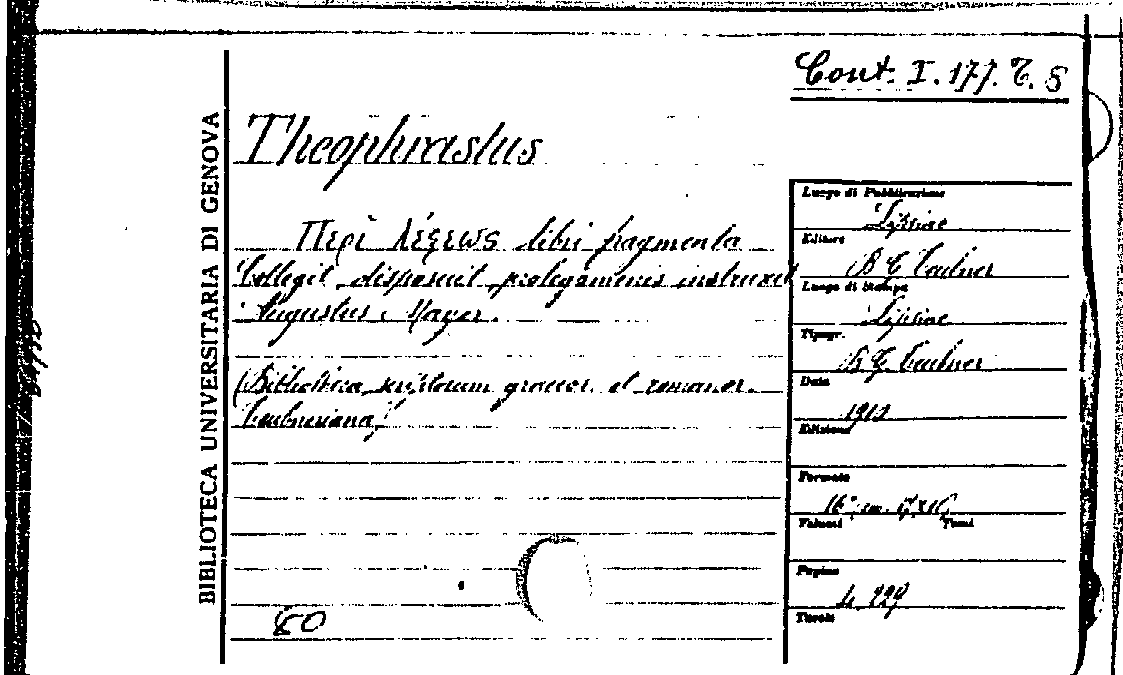 Cont. I. 177. T. 8
BIBLIOTECA UNIVERSITARIA DI GENOVA
Theophrastus
Περὶ λέξεως libri fragmenta
Collegit, disposuit, prolegomenis instruxit
Augustus Mayer.
(Bibliotheca scriptorum graecor. et romanor.
Teubneriana)
80
Luogo di Pubblicazione
Lipsiae
Editore
B G Teubner
Luogo di Stampa
Lipsiae
Tipogr.
B. G. Teubner
Data
Edizione
Formato
16° cm.
Volumi Tomi
Pagine
Tavole